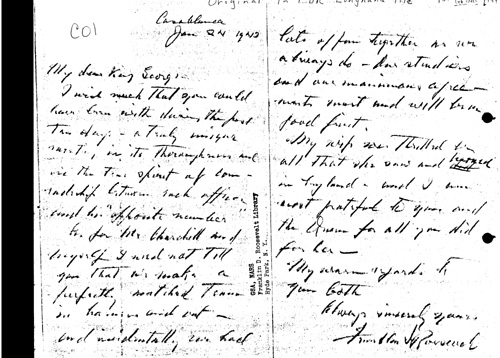 Original in FDR Longhand File
C01
Casablanca
Jan 24 1943
My dear King George
I wish much that you could
have been with us during the past
ten days - a truly unique
meeting in its thoroughness and
in the true spirit of com-
radeship between each officer
and his "opposite number"
As for Mr Churchill and
myself I need not tell
you that we make a
perfectly matched team
in harness and out -
and incidentally we had
lots of fun together as we
always do. Our studies
and our unanimous agree-
ments must and will bear
good fruit.
My wife was thrilled by
all that she saw and learned
in England - and I am
most grateful to you and
the Queen for all you did
for her -
My warm regards to
you both
Always sincerely yours
Franklin D Roosevelt
GSA, NARS
Franklin D. Roosevelt Library
Hyde Park, N. Y.